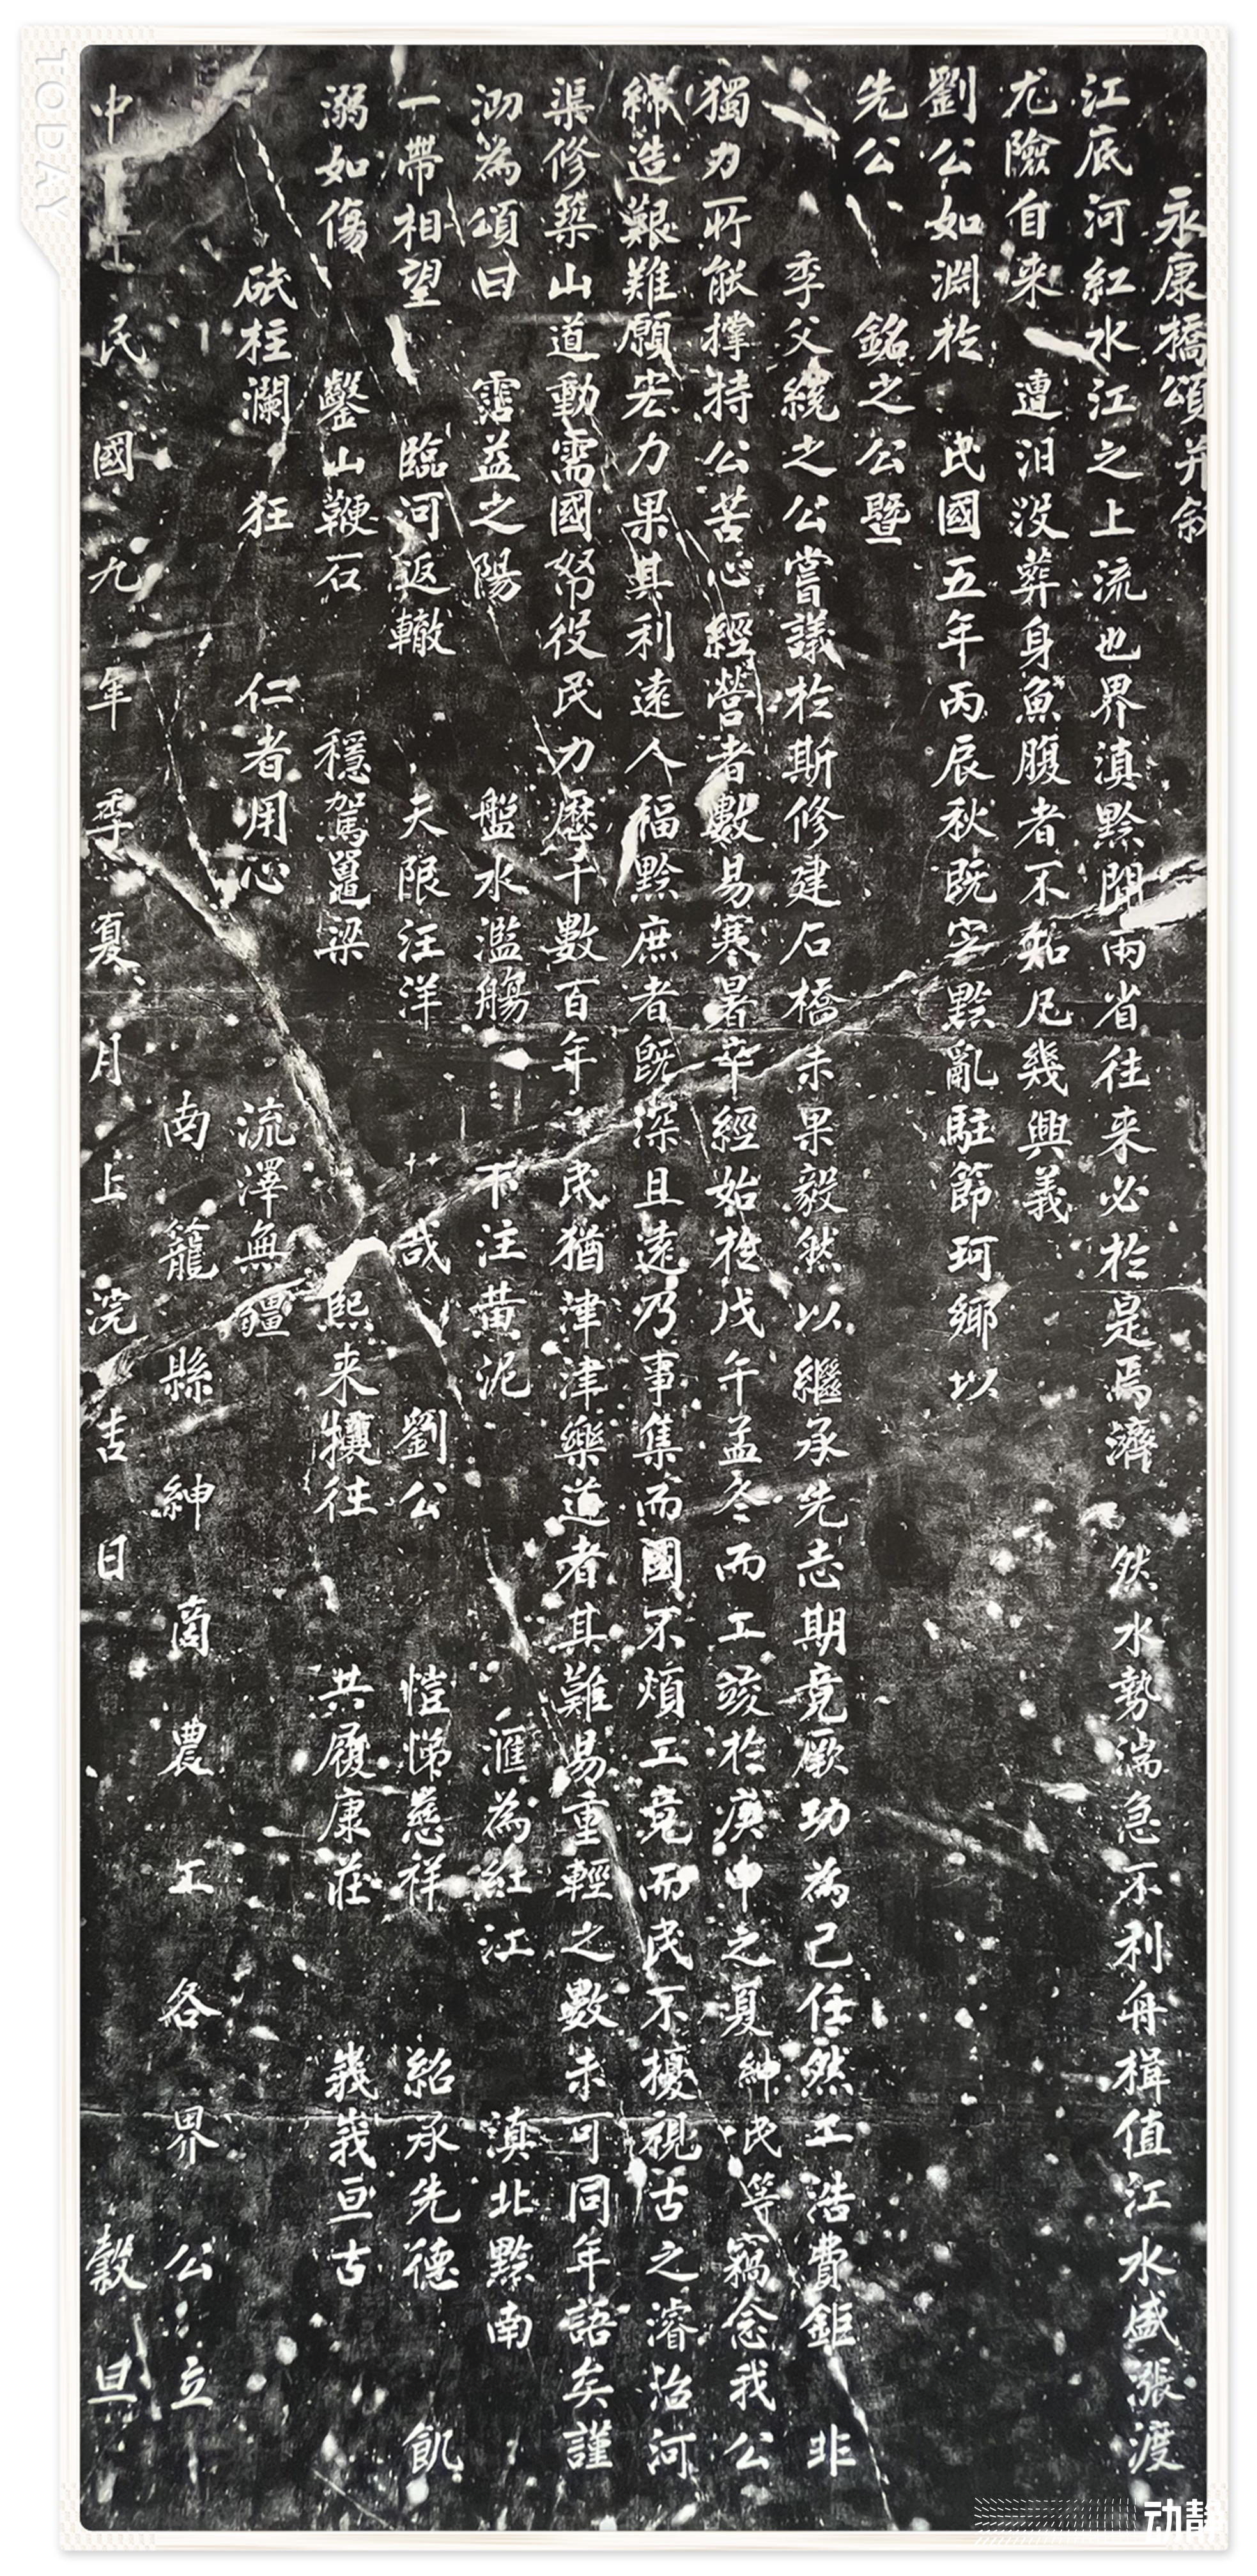 永康橋頌并敘
江底河紅水江之上流也界滇黔間兩省往来必於是焉濟 然水勢湍急不利舟楫值江水盛漲渡
尤險自来 遭汨没葬身魚腹者不知凡幾興義
劉公如淵於 民國五年丙辰秋既定黔亂駐節珂鄉以
先公 銘之公暨
季父統之公嘗議於斯修建石橋未果毅然以繼承先志期竟厥功為己任然工浩費鉅 非
獨力所能撑持公苦心經營者數易寒暑卒經始於戊午孟冬而工竣於庚申之夏紳民等竊念我公
締造艱難願宏力果其利遠人福黔庶者既深且遠乃事集而國不煩工竟而民不擾視古之濬治河
渠修築山道動需國帑役民力歷千數百年 民猶津津樂道者其難易重輕之數未可同年語矣謹
泐為頌曰 霑益之陽 盤水濫觴 下注黄泥 滙為紅江 滇北黔南
一帶相望 臨河返轍 天限汪洋 哉劉公 愷悌慈祥 紹承先德 飢
溺如傷 鑿山鞭石 穩駕鼉梁 熙来攘往 共履康莊 峩峩亘古
砥柱瀾狂 仁者用心 流澤無疆
南籠縣紳商農工各界公立
中 民國九年季夏月上浣吉日 穀旦
TODAY
动静